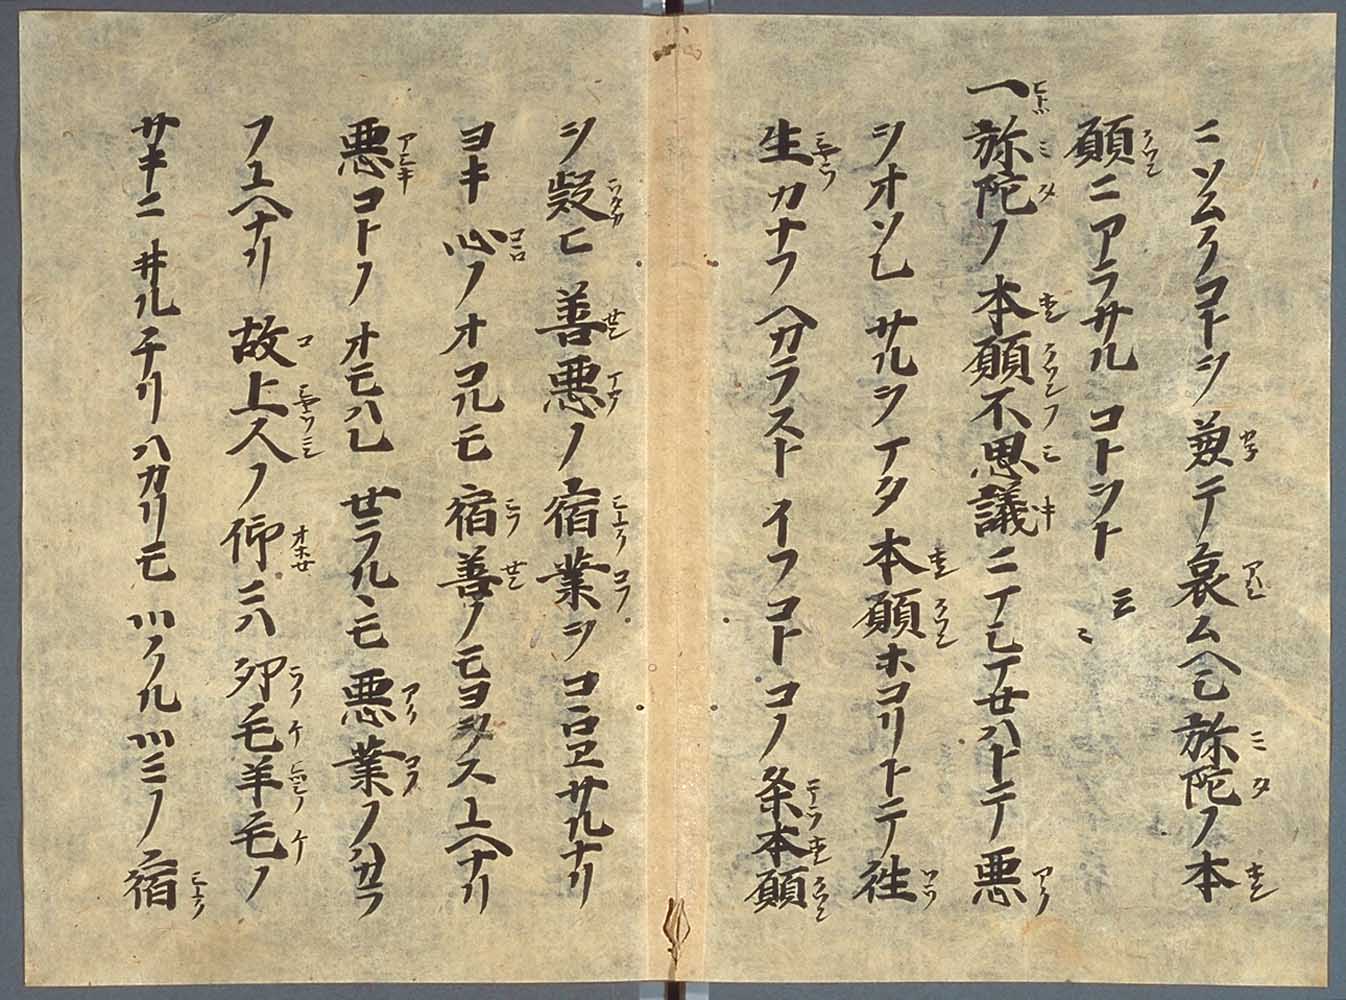 ニソムクコトヲ兼テ哀ムヘシ弥陀ノ本
願ニアラサルコトヲト云々
一弥陀ノ本願不思議ニオハシマセハトテ悪
ヲオソレサルヲイタ本願ホコリトテ往
生カナフヘカラストイフコトコノ条本願
ヲ疑ヒ善悪ノ宿業ヲココロエサルナリ
ヨキ心ノオコルモ宿善ノモヨホスユヘナリ
悪コトノオモハレセラルルモ悪業ノハカラ
フユヘナリ故上人ノ仰ニハ卯毛羊毛ノ
サキニヰルチリハカリモツクルツミノ宿